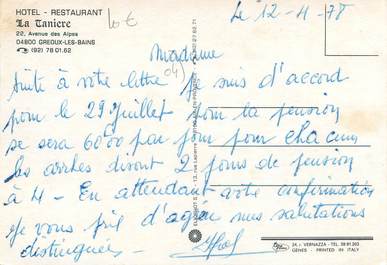 HOTEL - RESTAURANT
La Taniere
22, Avenue des Alpes
04800 GREOUX-LES-BAINS
(92) 78 01.62
10 €
Le 12-4-78
Madame
(04)
Suite à votre lettre je suis d'accord
pour le 29 juillet pour la pension
se sera 60,00 par jour pour chacun
les arrhes diront 2 jours de pension
à 4 - En attendant votre confirmation
je vous prie d'agréer mes salutations
distinguées
VERNAZZA - TEL.
GÊNES - PRINTED IN ITALY